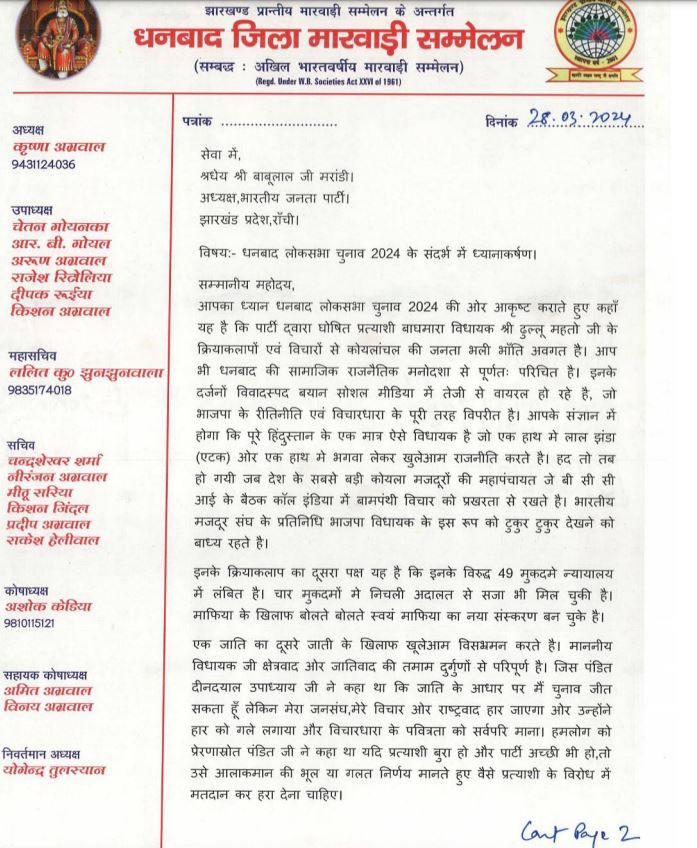 झारखण्ड प्रान्तीय मारवाड़ी सम्मेलन के अन्तर्गत
धनबाद जिला मारवाड़ी सम्मेलन
(सम्बद्ध : अखिल भारतवर्षीय मारवाड़ी सम्मेलन)
(Regd. Under W.B. Societies Act XXVI of 1961)
पत्रांक ............................
दिनांक 28.03.2024
अध्यक्ष
कृष्णा अग्रवाल
9431124036
उपाध्यक्ष
चेतन गोयनका
आर. बी. गोयल
अरूण अग्रवाल
राजेश रिटोलिया
दीपक रूईया
किशन अग्रवाल
महासचिव
ललित कु० झुनझुनवाला
9835174018
सचिव
चन्द्रशेखर शर्मा
नीरंजन अग्रवाल
मीतू सरिया
किशन जिंदल
प्रदीप अग्रवाल
राकेश हेलीवाल
कोषाध्यक्ष
अशोक केडिया
9810115121
सहायक कोषाध्यक्ष
अमित अग्रवाल
विनय अग्रवाल
निवर्तमान अध्यक्ष
योगेन्द्र तुलस्यान
सेवा में,
श्रधेय श्री बाबूलाल जी मरांडी।
अध्यक्ष,भारतीय जनता पार्टी।
झारखंड प्रदेश,राँची।
विषय:- धनबाद लोकसभा चुनाव 2024 के संदर्भ में ध्यानाकर्षण।
सम्मानीय महोदय,
आपका ध्यान धनबाद लोकसभा चुनाव 2024 की ओर आकृष्ट कराते हुए कहाँ
यह है कि पार्टी द्वारा घोषित प्रत्याशी बाघमारा विधायक श्री ढुल्लू महतो जी के
क्रियाकलापों एवं विचारों से कोयलांचल की जनता भली भाँति अवगत है। आप
भी धनबाद की सामाजिक राजनैतिक मनोदशा से पूर्णतः परिचित है। इनके
दर्जनों विवादस्पद बयान सोशल मीडिया में तेजी से वायरल हो रहे है, जो
भाजपा के रीतिनीति एवं विचारधारा के पूरी तरह विपरीत है। आपके संज्ञान में
होगा कि पूरे हिंदुस्तान के एक मात्र ऐसे विधायक है जो एक हाथ मे लाल झंडा
(एटक) ओर एक हाथ मे भगवा लेकर खुलेआम राजनीति करते है। हद तो तब
हो गयी जब देश के सबसे बड़ी कोयला मजदूरों की महापंचायत जे बी सी सी
आई के बैठक कॉल इंडिया में बामपंथी विचार को प्रखरता से रखते है। भारतीय
मजदूर संघ के प्रतिनिधि भाजपा विधायक के इस रूप को टुकुर टुकुर देखने को
बाध्य रहते है।
इनके क्रियाकलाप का दूसरा पक्ष यह है कि इनके विरुद्ध 49 मुकदमे न्यायालय
में लंबित है। चार मुकदमों मे निचली अदालत से सजा भी मिल चुकी है।
माफिया के खिलाफ बोलते बोलते स्वयं माफिया का नया संस्करण बन चुके है।
एक जाति का दूसरे जाती के खिलाफ खुलेआम विसभ्रमन करते है। माननीय
विधायक जी क्षेत्रवाद ओर जातिवाद की तमाम दुर्गुणों से परिपूर्ण है। जिस पंडित
दीनदयाल उपाध्याय जी ने कहा था कि जाति के आधार पर मैं चुनाव जीत
सकता हूँ लेकिन मेरा जनसंघ,मेरे विचार ओर राष्ट्रवाद हार जाएगा ओर उन्होंने
हार को गले लगाया और विचारधारा के पवित्रता को सर्वपरि माना। हमलोग को
प्रेरणास्रोत पंडित जी ने कहा था यदि प्रत्याशी बुरा हो और पार्टी अच्छी भी हो,तो
उसे आलाकमान की भूल या गलत निर्णय मानते हुए वैसे प्रत्याशी के विरोध में
मतदान कर हरा देना चाहिए।
Cont Page 2